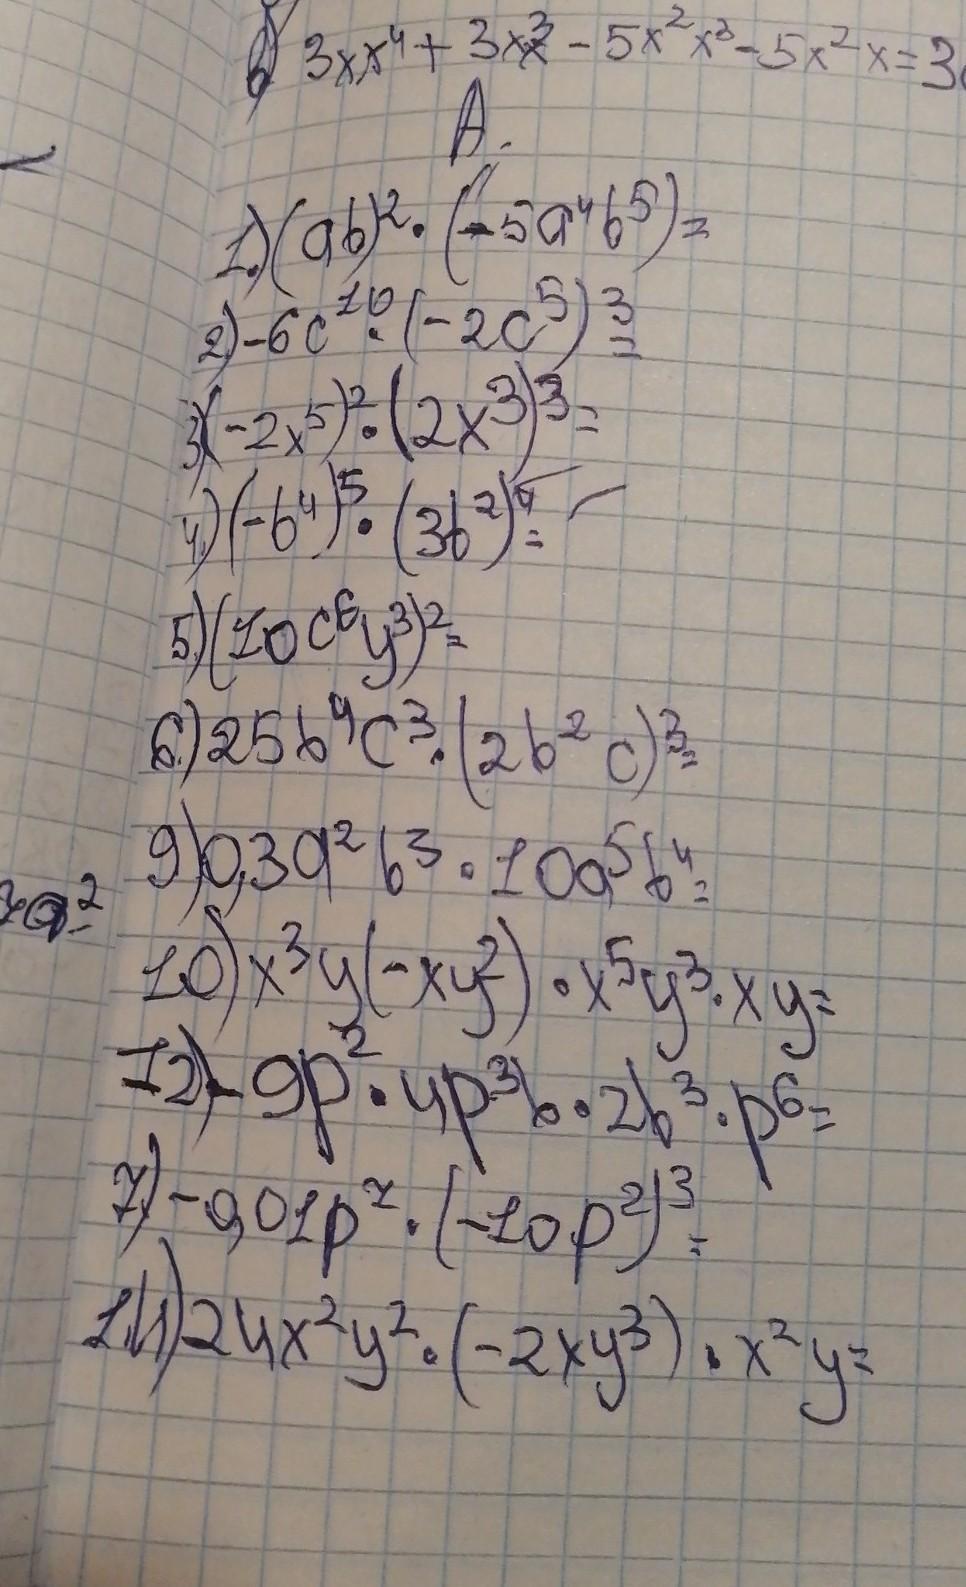 б) 3xx⁴ + 3xx³ - 5x²x³ - 5x²x = 3
A.
1.) (ab)² · (-5a⁴b⁵) =
2) -6c¹⁰ · (-2c⁵)³ =
3) (-2x⁵)² · (2x³)³ =
4.) (-b⁴)⁵ · (3b²)⁴ =
5.) (10c⁶y³)² =
6.) 25b⁴c³ · (2b²c)³ =
9) 0,3a²b³ · 10a⁵b⁴ =
10) x³y(-xy²) · x⁵y³ · xy =
12) -9p² · 4p³b · 2b³ · p⁶ =
7.) -0,01p⁷ · (-10p²)³ =
11) 24x²y² · (-2xy³) · x²y =